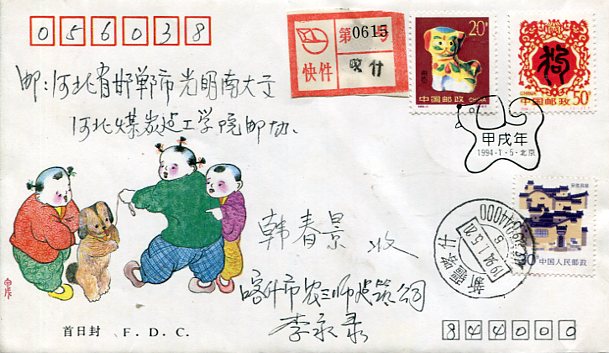 056038
第0615号
快件
20分
中国邮政 CHINA
狗
CHINA
中国邮政 50分
邮:河北省邯郸市光明南大街
河北煤炭建工学院邮协.
甲戌年
1994·1·5·北京
韩春景 收
中国人民邮政
新疆喀什
喀什市农三师建筑公司
李永录
甲戌
首日封 F. D. C.
844000